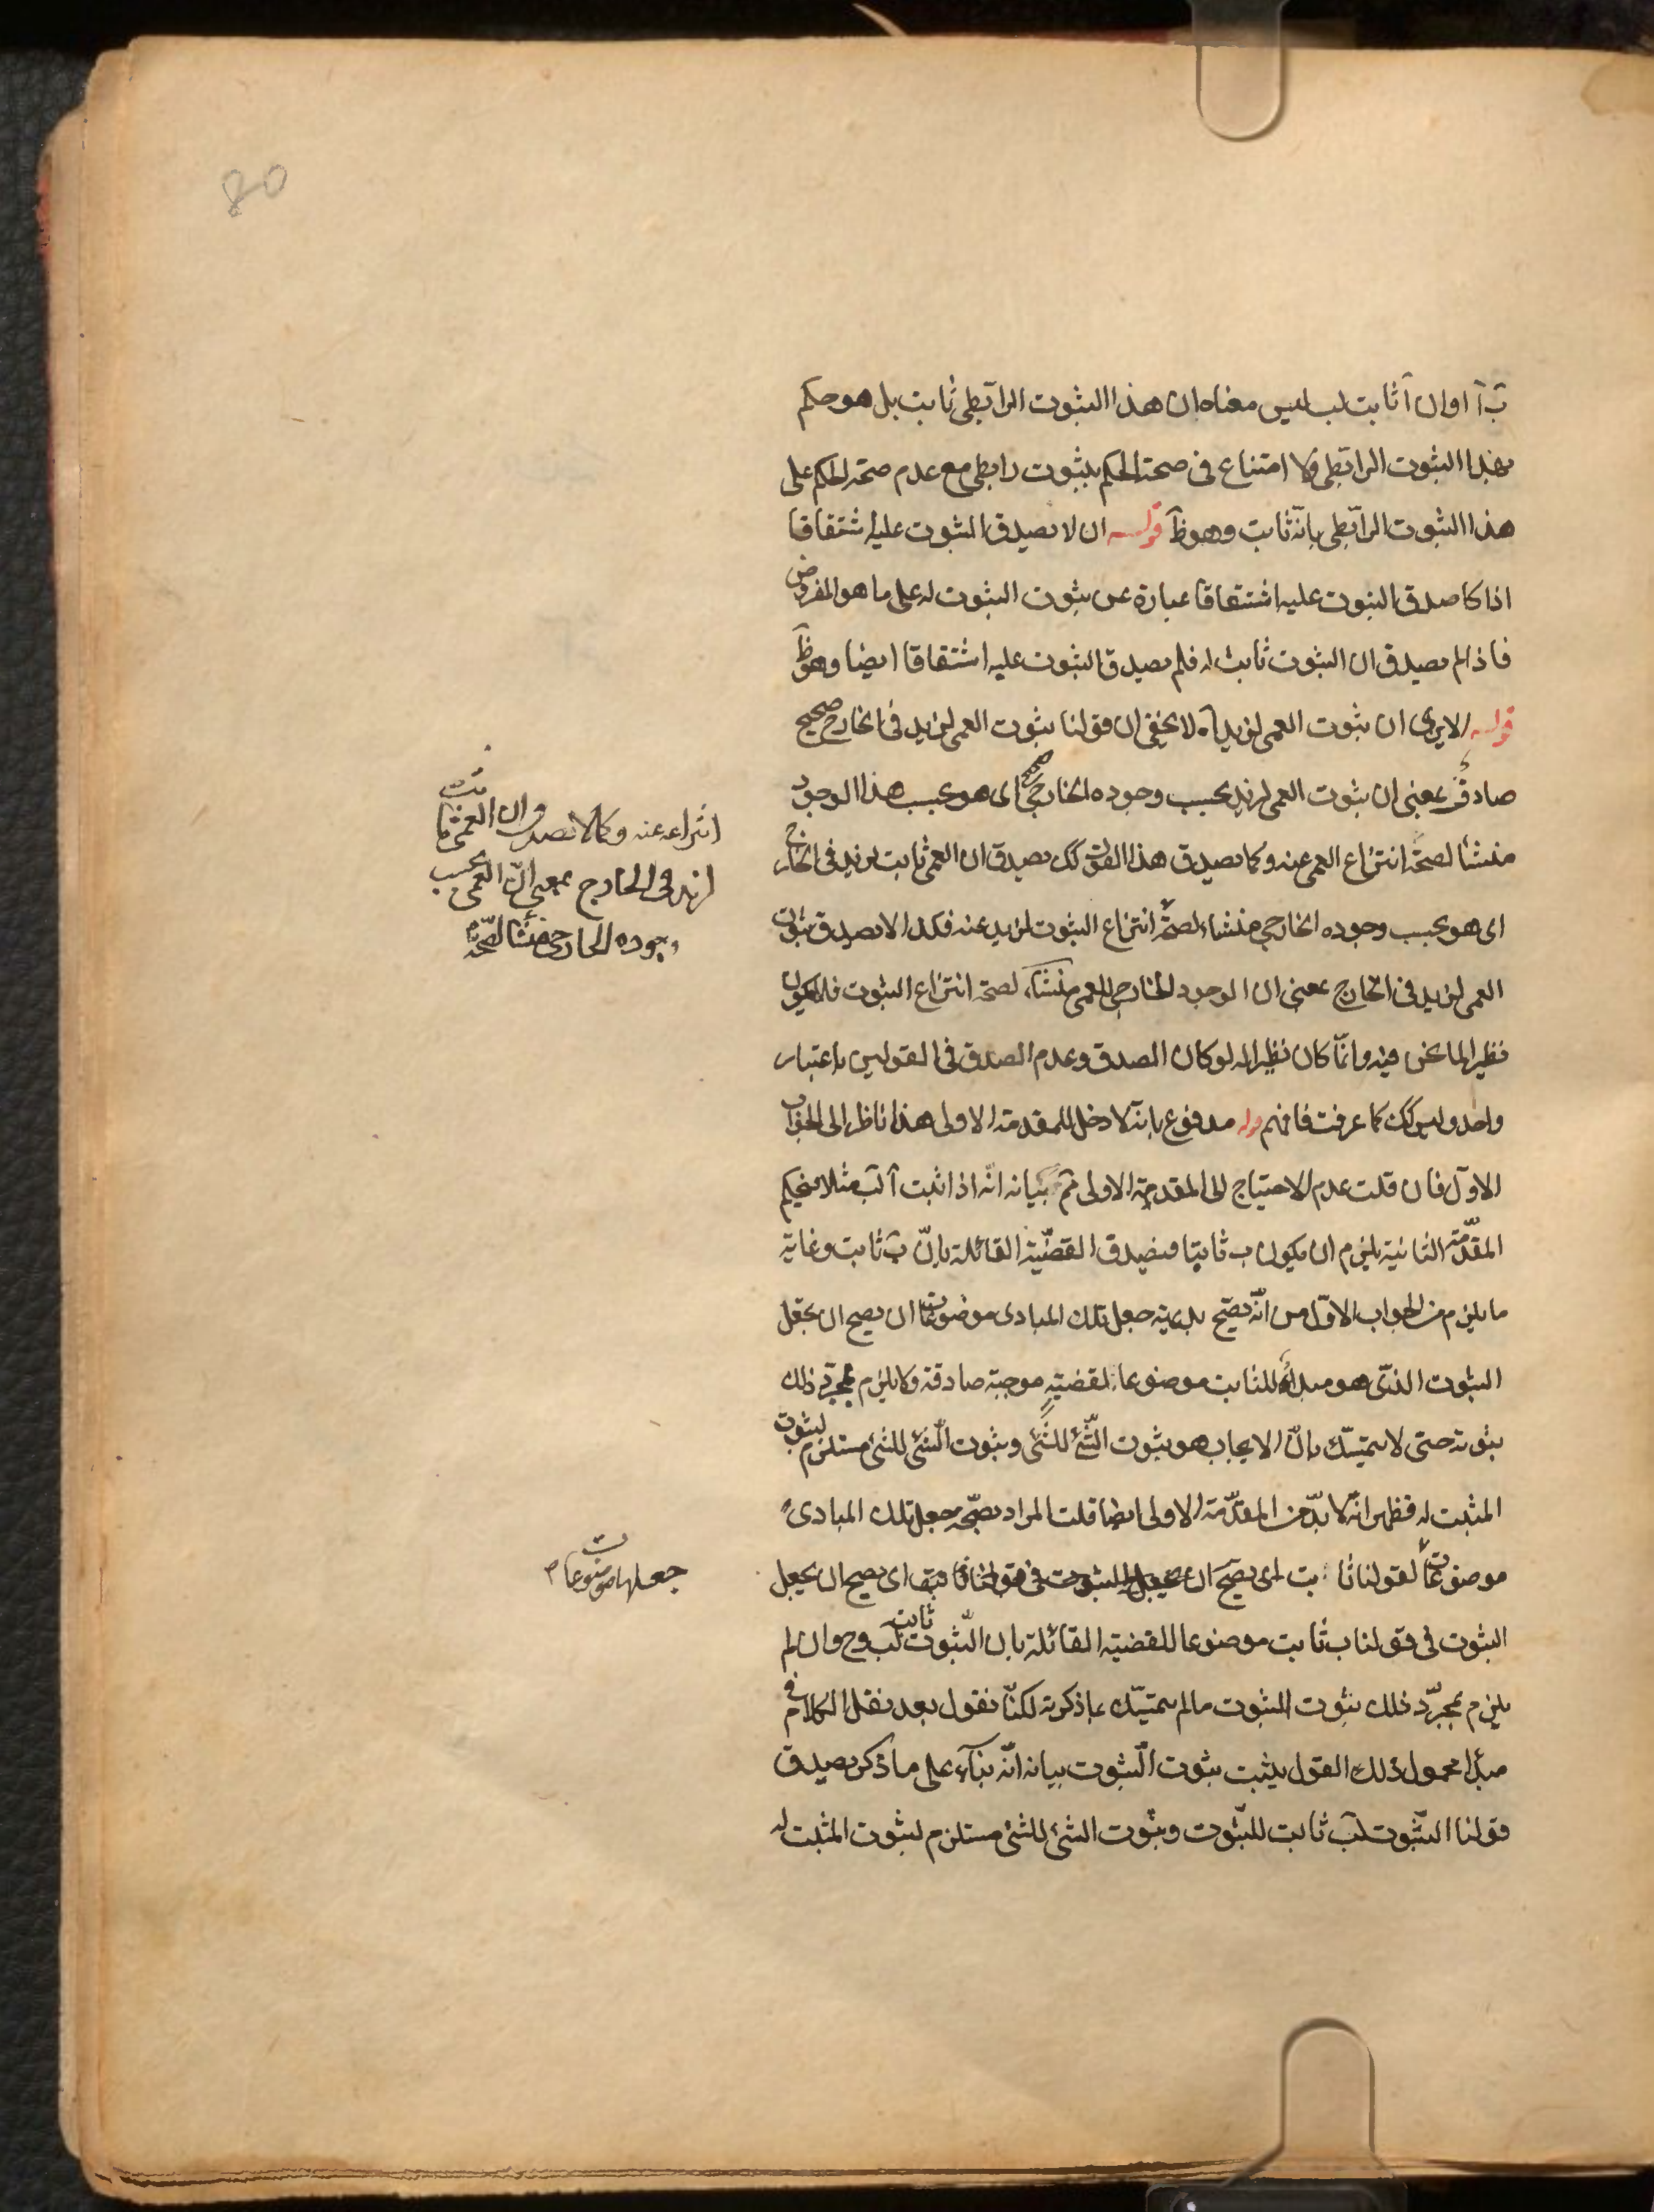 80
بَ آ او ان آ ثابت لب ليس معناه ان هذا الثبوت الرابطى ثابت بل هو حكم
بهذا الثبوت الرابطى ولا امتناع فى صحة الحكم بثبوت رابطى مع عدم صحة الحكم على
هذا الثبوت الرابطى بانّه ثابت وهو ظَ قوله ان لا يصدق الثبوت عليه اشتقاقا
اذا كا صدق الثبوت عليه اشتقاقا عبارة عن ثبوت الثبوت له على ما هو المفروض
فاذا لم يصدق ان الثبوت ثابت له فلم يصدق الثبوت عليه اشتقاقا ايضا وهو ظَ
قوله الا يرى ان ثبوت العمى لزيد اه لا يخفى ان قولنا ثبوت العمى لزيد فى الخارج صحيح
صادق بمعنى ان ثبوت العمى لزيد بحسب وجوده الخارجى صحيح اى هو بحسب هذا الوجود
منشأ لصحة انتزاع العمى عنه وكما يصدق هذا القول كك يصدق ان العمى ثابت لزيد فى الخارج
اى هو بحسب وجوده الخارجى منشاء لصحة انتزاع الثبوت لزيد عنه فكذا لا يصدق ثبوت
العمى لزيد فى الخارج بمعنى ان الوجود الخارجى للعمى منشاء لصحة انتزاع الثبوت فلا يكون
نظيرا لما نحن فيه وانّما كان نظيرا له لو كان الصدق وعدم الصدق فى القولين باعتبار
واحد وليس كك كما عرفت فافهم قوله مدفوع بانه لا دخل للمقدمة الاولى هذا ناظر الى الجواب
الاوّل فان قلت عدم الاحتياج الى المقدمة الاولى تم بيانه انّه اذا ثبت آ لب مثلا فبحكم
المقدّمة الثانية يلزم ان يكون ب ثابتا فيصدق القضيّة القائلة بانّ بَ ثابت وغاية
ما يلزم من الجواب الاوّل من انّه يصحّ بديهة جعل تلك المبادى موضوعات ان يصح ان يجعل
الثبوت الذى هو مبدأ للثابت موضوعا لقضية موجبة صادقة ولا يلزم بمجرّد ذلك
ثبوته حتى لا يتمسّك بانّ الايجاب هو ثبوت الشّئ للشّئ وثبوت الشئ للشئ مستلزم لثبوت
المثبت له فظهر انّه لا بدّ من المقدّمة الاولى ايضا قلت المراد بصحّة جعل تلك المبادى
موضوعات لقولنا ثابت اى يصحّ ان يجعل الثبوت فى قولنا اى يصح ان يجعل
الثبوت فى قولنا ب ثابت موضوعا للقضية القائلة بان الثّبوت ثابت لب وح وان لم
يلزم بمجرّد ذلك ثبوت الثبوت ما لم يتمسّك بما ذكرته لكنّا نقول بعد نقل الكلام فى
مبدا محمول ذلك القول يثبت ثبوت الثّبوت بيانه انّه بناء على ما ذكر يصدق
قولنا الثّبوت لبَ ثابت للثّبوت وثبوت الشئ للشئ مستلزم لثبوت المثبت له
انتزاعه عنه وكما لا يصدق ان العمى ثابت
لزيد فى الخارج بمعنى انّ العمى بحسب
وجوده الخارجى منشأ لصحّة
جعلها موضوعات